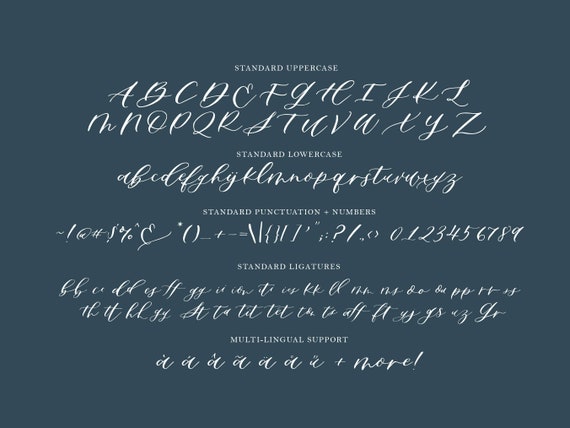 STANDARD UPPERCASE
A B C D E F G H I J K L
M N O P Q R S T U V W X Y Z
STANDARD LOWERCASE
abcdefghijklmnopqrstuvwxyz
STANDARD PUNCTUATION + NUMBERS
~!@#$%^& *()_+-=\|{}[]'":;?/.,<> 0123456789
STANDARD LIGATURES
bb cc dd es ff gg ii ion iti is kk ll mm nn oo oa pp rr ss
th tt ht lt gy St ta tit tot tm to aff ft yy gs uz Gr
MULTI-LINGUAL SUPPORT
à á â ã ä å ü + more!